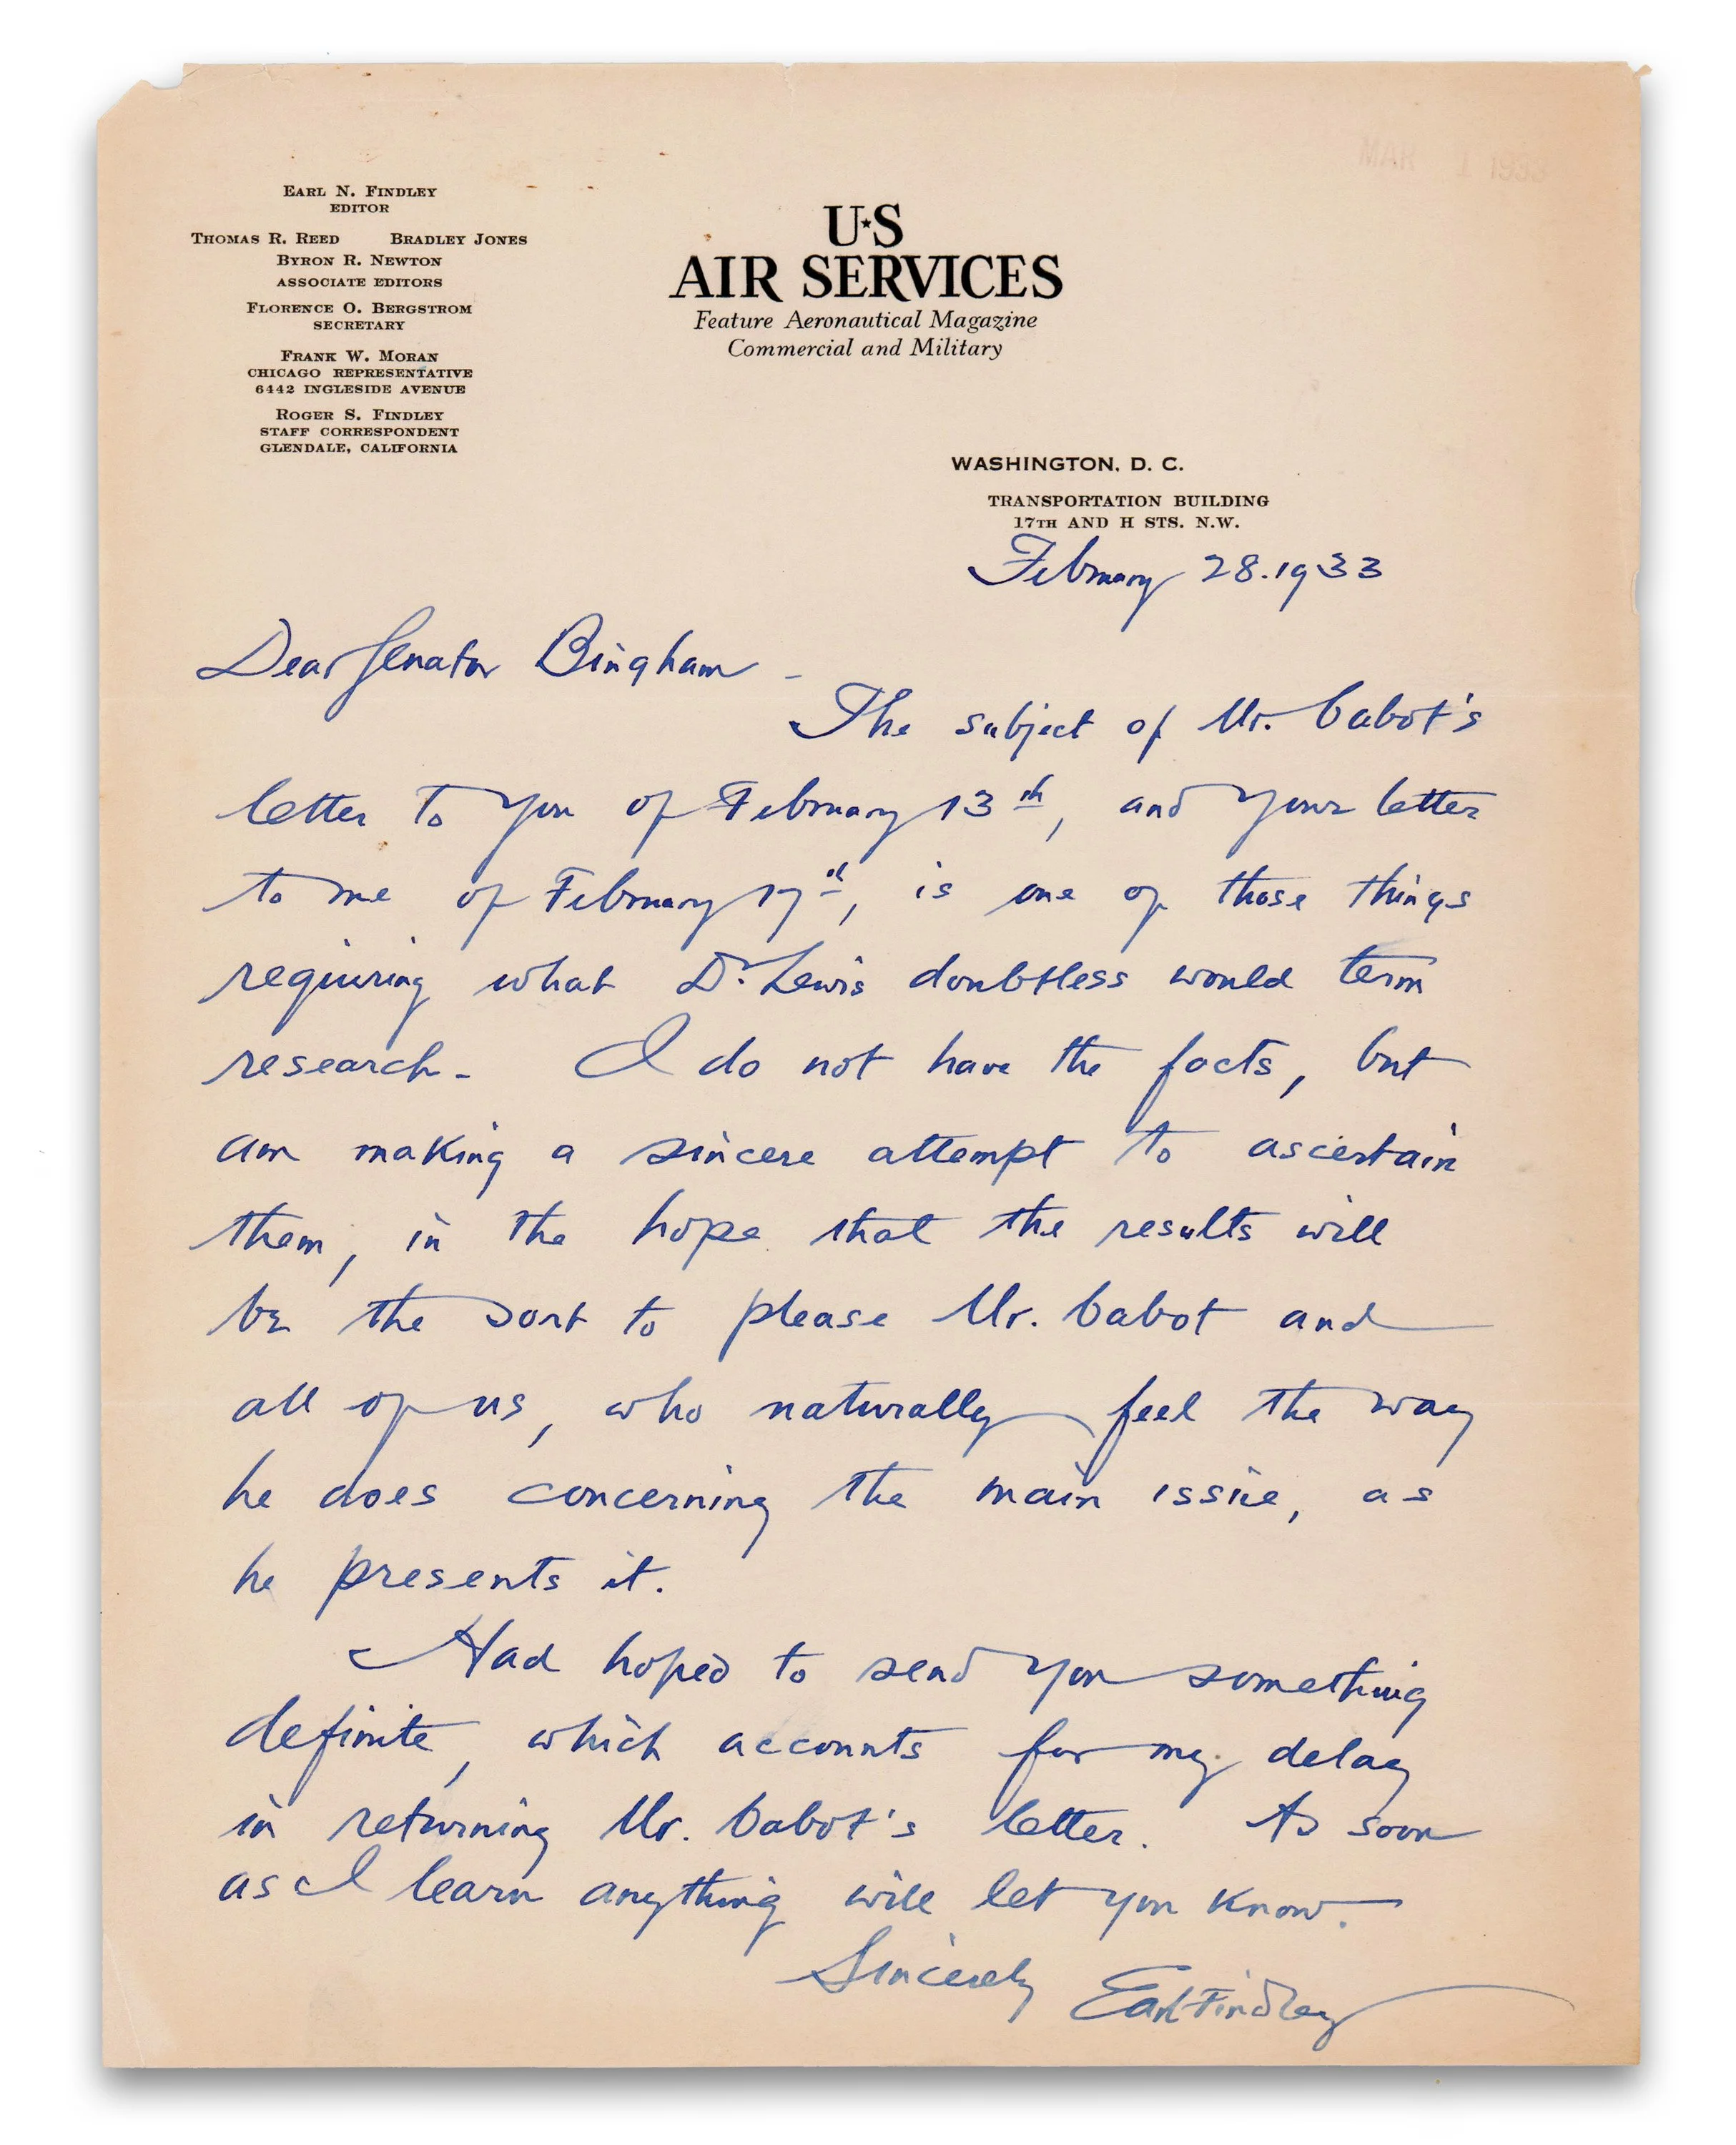 MAR 1 1933
EARL N. FINDLEY
EDITOR
THOMAS R. REED BRADLEY JONES
BYRON R. NEWTON
ASSOCIATE EDITORS
FLORENCE O. BERGSTROM
SECRETARY
FRANK W. MORAN
CHICAGO REPRESENTATIVE
6442 INGLESIDE AVENUE
ROGER S. FINDLEY
STAFF CORRESPONDENT
GLENDALE, CALIFORNIA
U★S
AIR SERVICES
Feature Aeronautical Magazine
Commercial and Military
WASHINGTON, D. C.
TRANSPORTATION BUILDING
17TH AND H STS. N.W.
February 28.1933
Dear Senator Bingham -
The subject of Mr. Cabot's
letter to you of February 13th, and your letter
to me of February 17th, is one of those things
requiring what Dr. Lewis doubtless would term
research. I do not have the facts, but
am making a sincere attempt to ascertain
them, in the hope that the results will
be the sort to please Mr. Cabot and
all of us, who naturally feel the way
he does concerning the main issue, as
he presents it.
Had hoped to send you something
definite, which accounts for my delay
in returning Mr. Cabot's letter. As soon
as I learn anything will let you know.
Sincerely Earl Findley